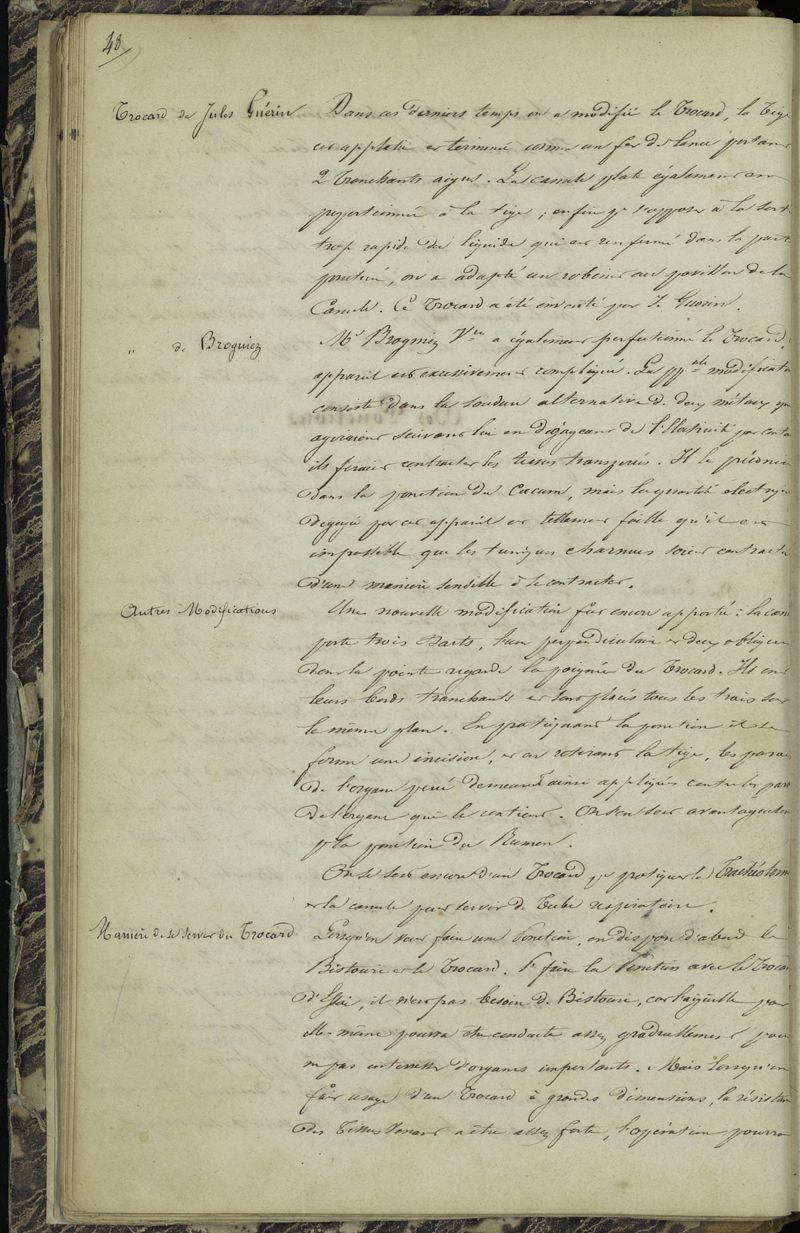 48
Trocard de Jules Guérin
Dans ces derniers temps on a modifié le Trocard, la Tige
est applatie et terminée comme un fer de lance portant
2 Tranchants aigus. La canule plate également est
proportionnée à la tige ; enfin pr s'opposer à la sort
trop rapide du liquide qui est renfermé dans la part
ponctionnée, on a adapté un robinet au pavillon de la
Canule. Ce Trocard a été inventé par J. Guérin.
" de Brogniez
Mr Brogniez Vre a également perfectionné le Trocard.
appareil est excessivement compliqué. La ppale modificat
consiste dans la soudure alternative de deux métaux qu
agissaient suivant lui en dégageant de l'Elasticité par conta
ils feraient contracter les tissus transpercés. Il le préconise
dans la ponction du Cæcum, mais la quantité electriq
dégagée par cet appareil est tellement faible qu'il est
impossible que les tuniques charnues soient contracte
d'une manière sensible à se contracter.
Autres Modifications
Une nouvelle modification fut encore apportée : la can
porte trois Darts, l'un perpendiculaire et deux obliques
dont la pointe regarde la poignée du Trocard. Ils ont
leurs bords tranchants et sont placés tous les trois sur
le même plan. En pratiquant la ponction il se
forme une incision, et en retirant la tige, les parois
de l'organe percé demeurent ainsi appliquées contre les paro
de l'organe qui le contient. On s'en sert avantageusem
pr la ponction du Rumen.
On se sert encore d'un Trocard pr pratiquer la Trachéotom
et la canule peut servir de Tube respiratoire.
Manière de se servir du Trocard
Lorsqu'on veut faire une Ponction, on dispose d'abord le
Bistouri et le Trocard. Pr faire la Ponction avec le Trocar
d'Essai, il n'est pas besoin de Bistouri, car l'aiguille par
elle-même pourra être conduite assez graduellement pour
ne pas intéresser d'organes importants. Mais lorsqu'on
fait usage d'un Trocard à grandes dimensions, la résistan
des Tissus venant à être assez forte, l'opération pourra